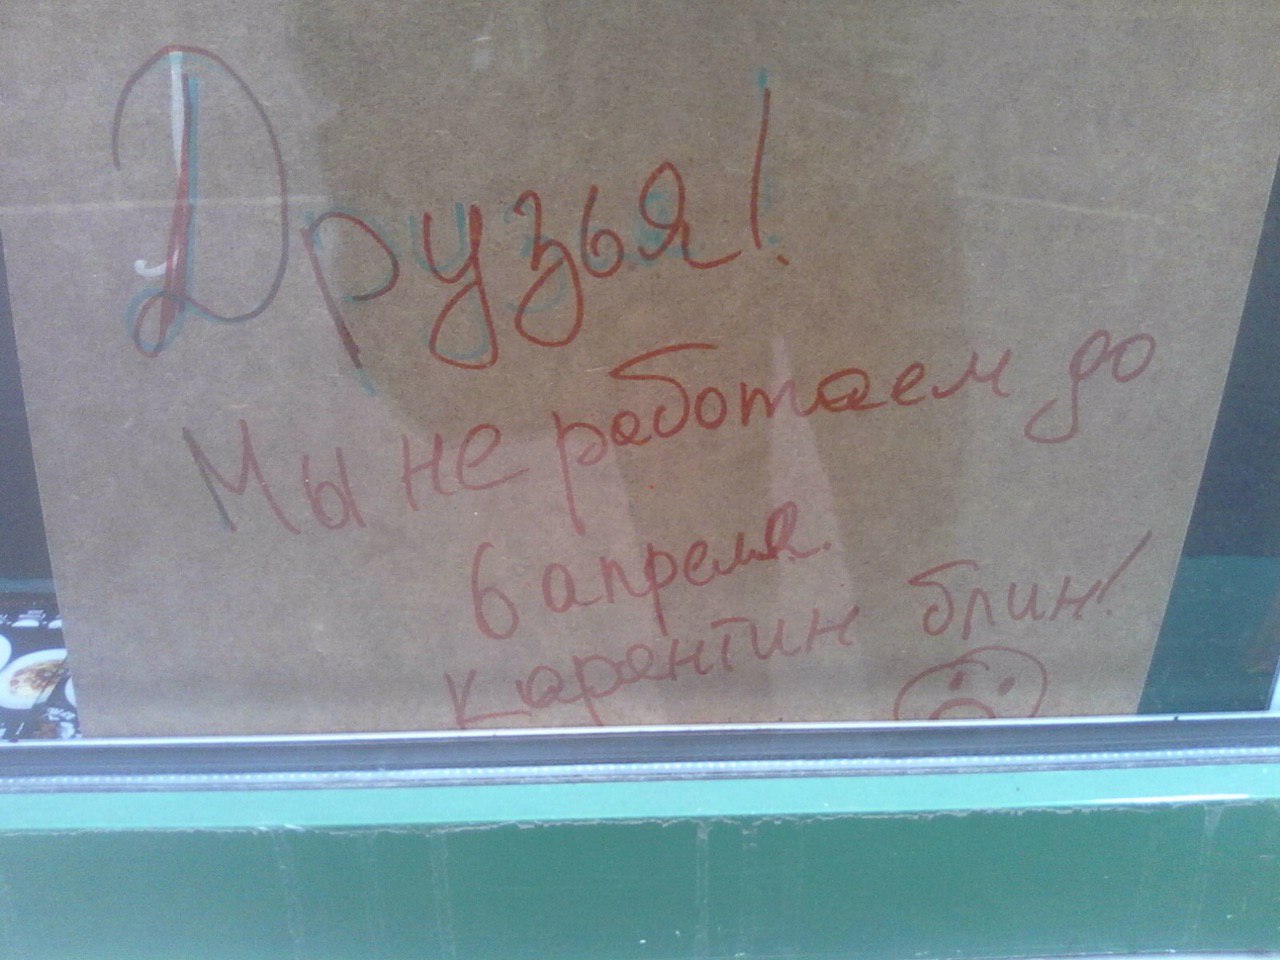 Друзья!
Мы не работаем до
6 апреля.
карантин блин!